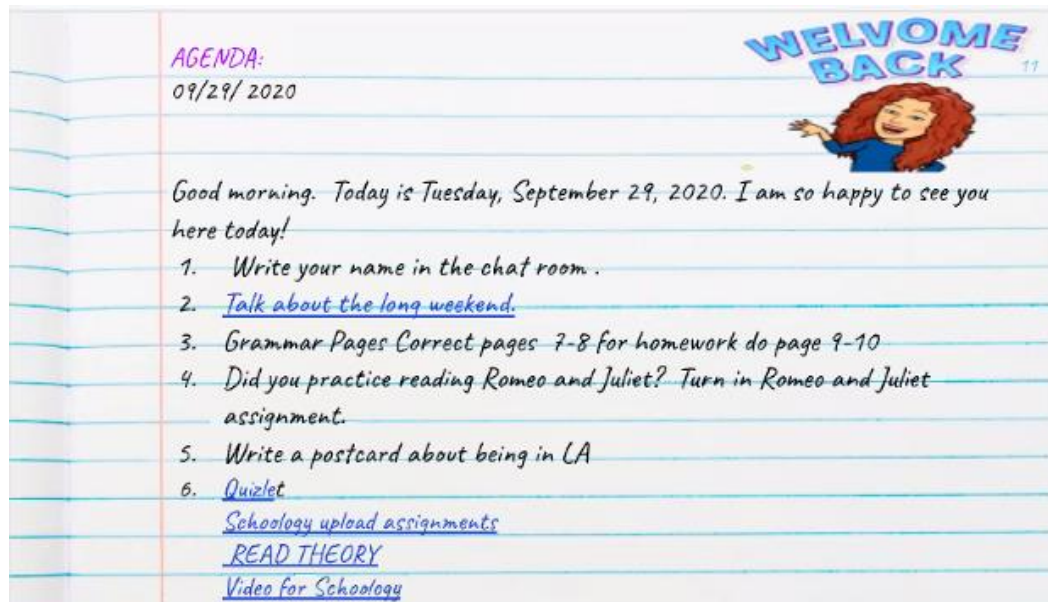 WELVOME
BACK
11
AGENDA:
09/29/ 2020
Good morning. Today is Tuesday, September 29, 2020. I am so happy to see you
here today!
1. Write your name in the chat room .
2. Talk about the long weekend.
3. Grammar Pages Correct pages 7-8 for homework do page 9-10
4. Did you practice reading Romeo and Juliet? Turn in Romeo and Juliet
assignment.
5. Write a postcard about being in LA
6. Quizlet
Schoology upload assignments
READ THEORY
Video for Schoology